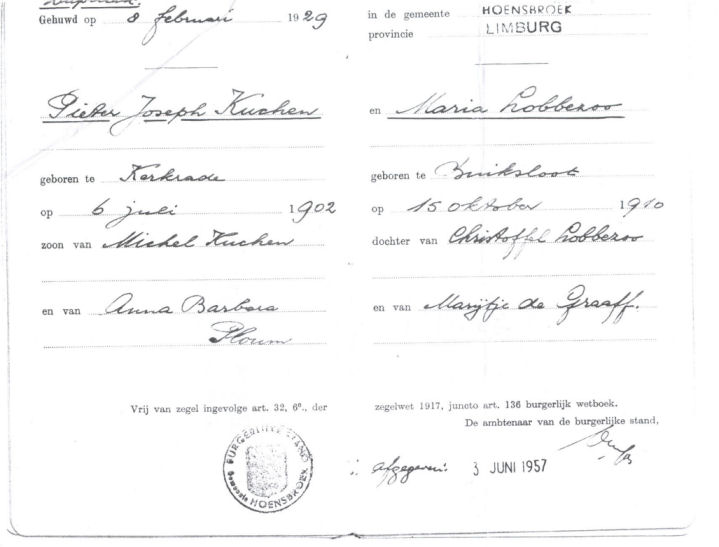 Gehuwd op 8 februari 1929
in de gemeente HOENSBROEK
provincie LIMBURG
Pieter Joseph Kuchen
en Maria Lobbezoo
geboren te Kerkrade
op 6 juli 1902
zoon van Michel Kuchen
en van Anna Barbara
Ploum
geboren te Buiksloot
op 15 oktober 1910
dochter van Christoffel Lobbezoo
en van Marijtje de Graaff.
Vrij van zegel ingevolge art. 32, 6°., der zegelwet 1917, juncto art. 136 burgerlijk wetboek.
De ambtenaar van de burgerlijke stand,
BURGERLIJKE STAND
Gemeente HOENSBROEK
afgegeven: 3 JUNI 1957